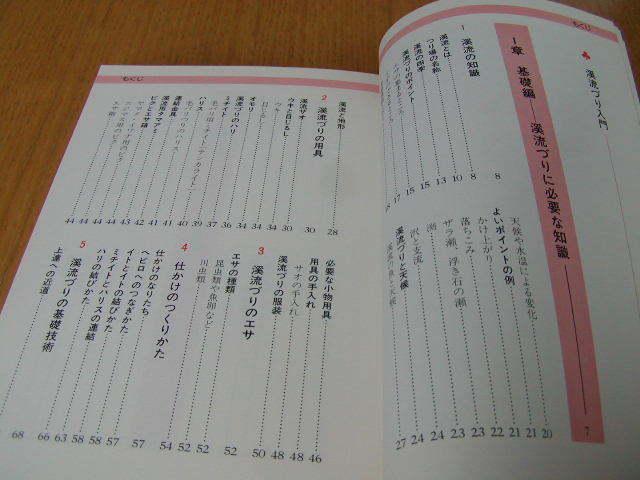 もくじ
渓流づり入門
I章 基礎編——渓流づりに必要な知識 7
1 渓流の知識 8
渓流とは 8
つり場の名称 10
渓流の四季 13
渓流づりのポイント 15
天候や水温による変化 20
よいポイントの例 21
かけ上がり 21
落ちこみ 22
ザラ瀬、浮き石の瀬 23
渕 23
沢と支流 24
渓流づりと天候 24
27
もくじ
渓流と地形 28
2 渓流づりの用具 30
渓流ザオ 30
ウキと目じるし 34
ウキ 34
目じるし 34
オモリ 34
渓流づりのハリ 36
ミチイト 37
ハリス 39
毛バリづりのハリス 40
連結金具 41
渓流用タマアミ 41
ビクとエサ箱 42
44
エサ箱 44
必要な小物用具 46
用具の手入れ 48
サオの手入れ 48
渓流づりの服装 48
3 渓流づりのエサ 50
エサの種類 52
昆虫類や魚卵など 52
川虫類 52
4 仕かけのつくりかた 54
仕かけのなりたち 57
ヘビ口へのつなぎかた 57
イトとイトの結びかた 58
ミチイトとハリスの連結 58
ハリの結びかた 63
5 渓流づりの基礎技術 66
上達への近道 68